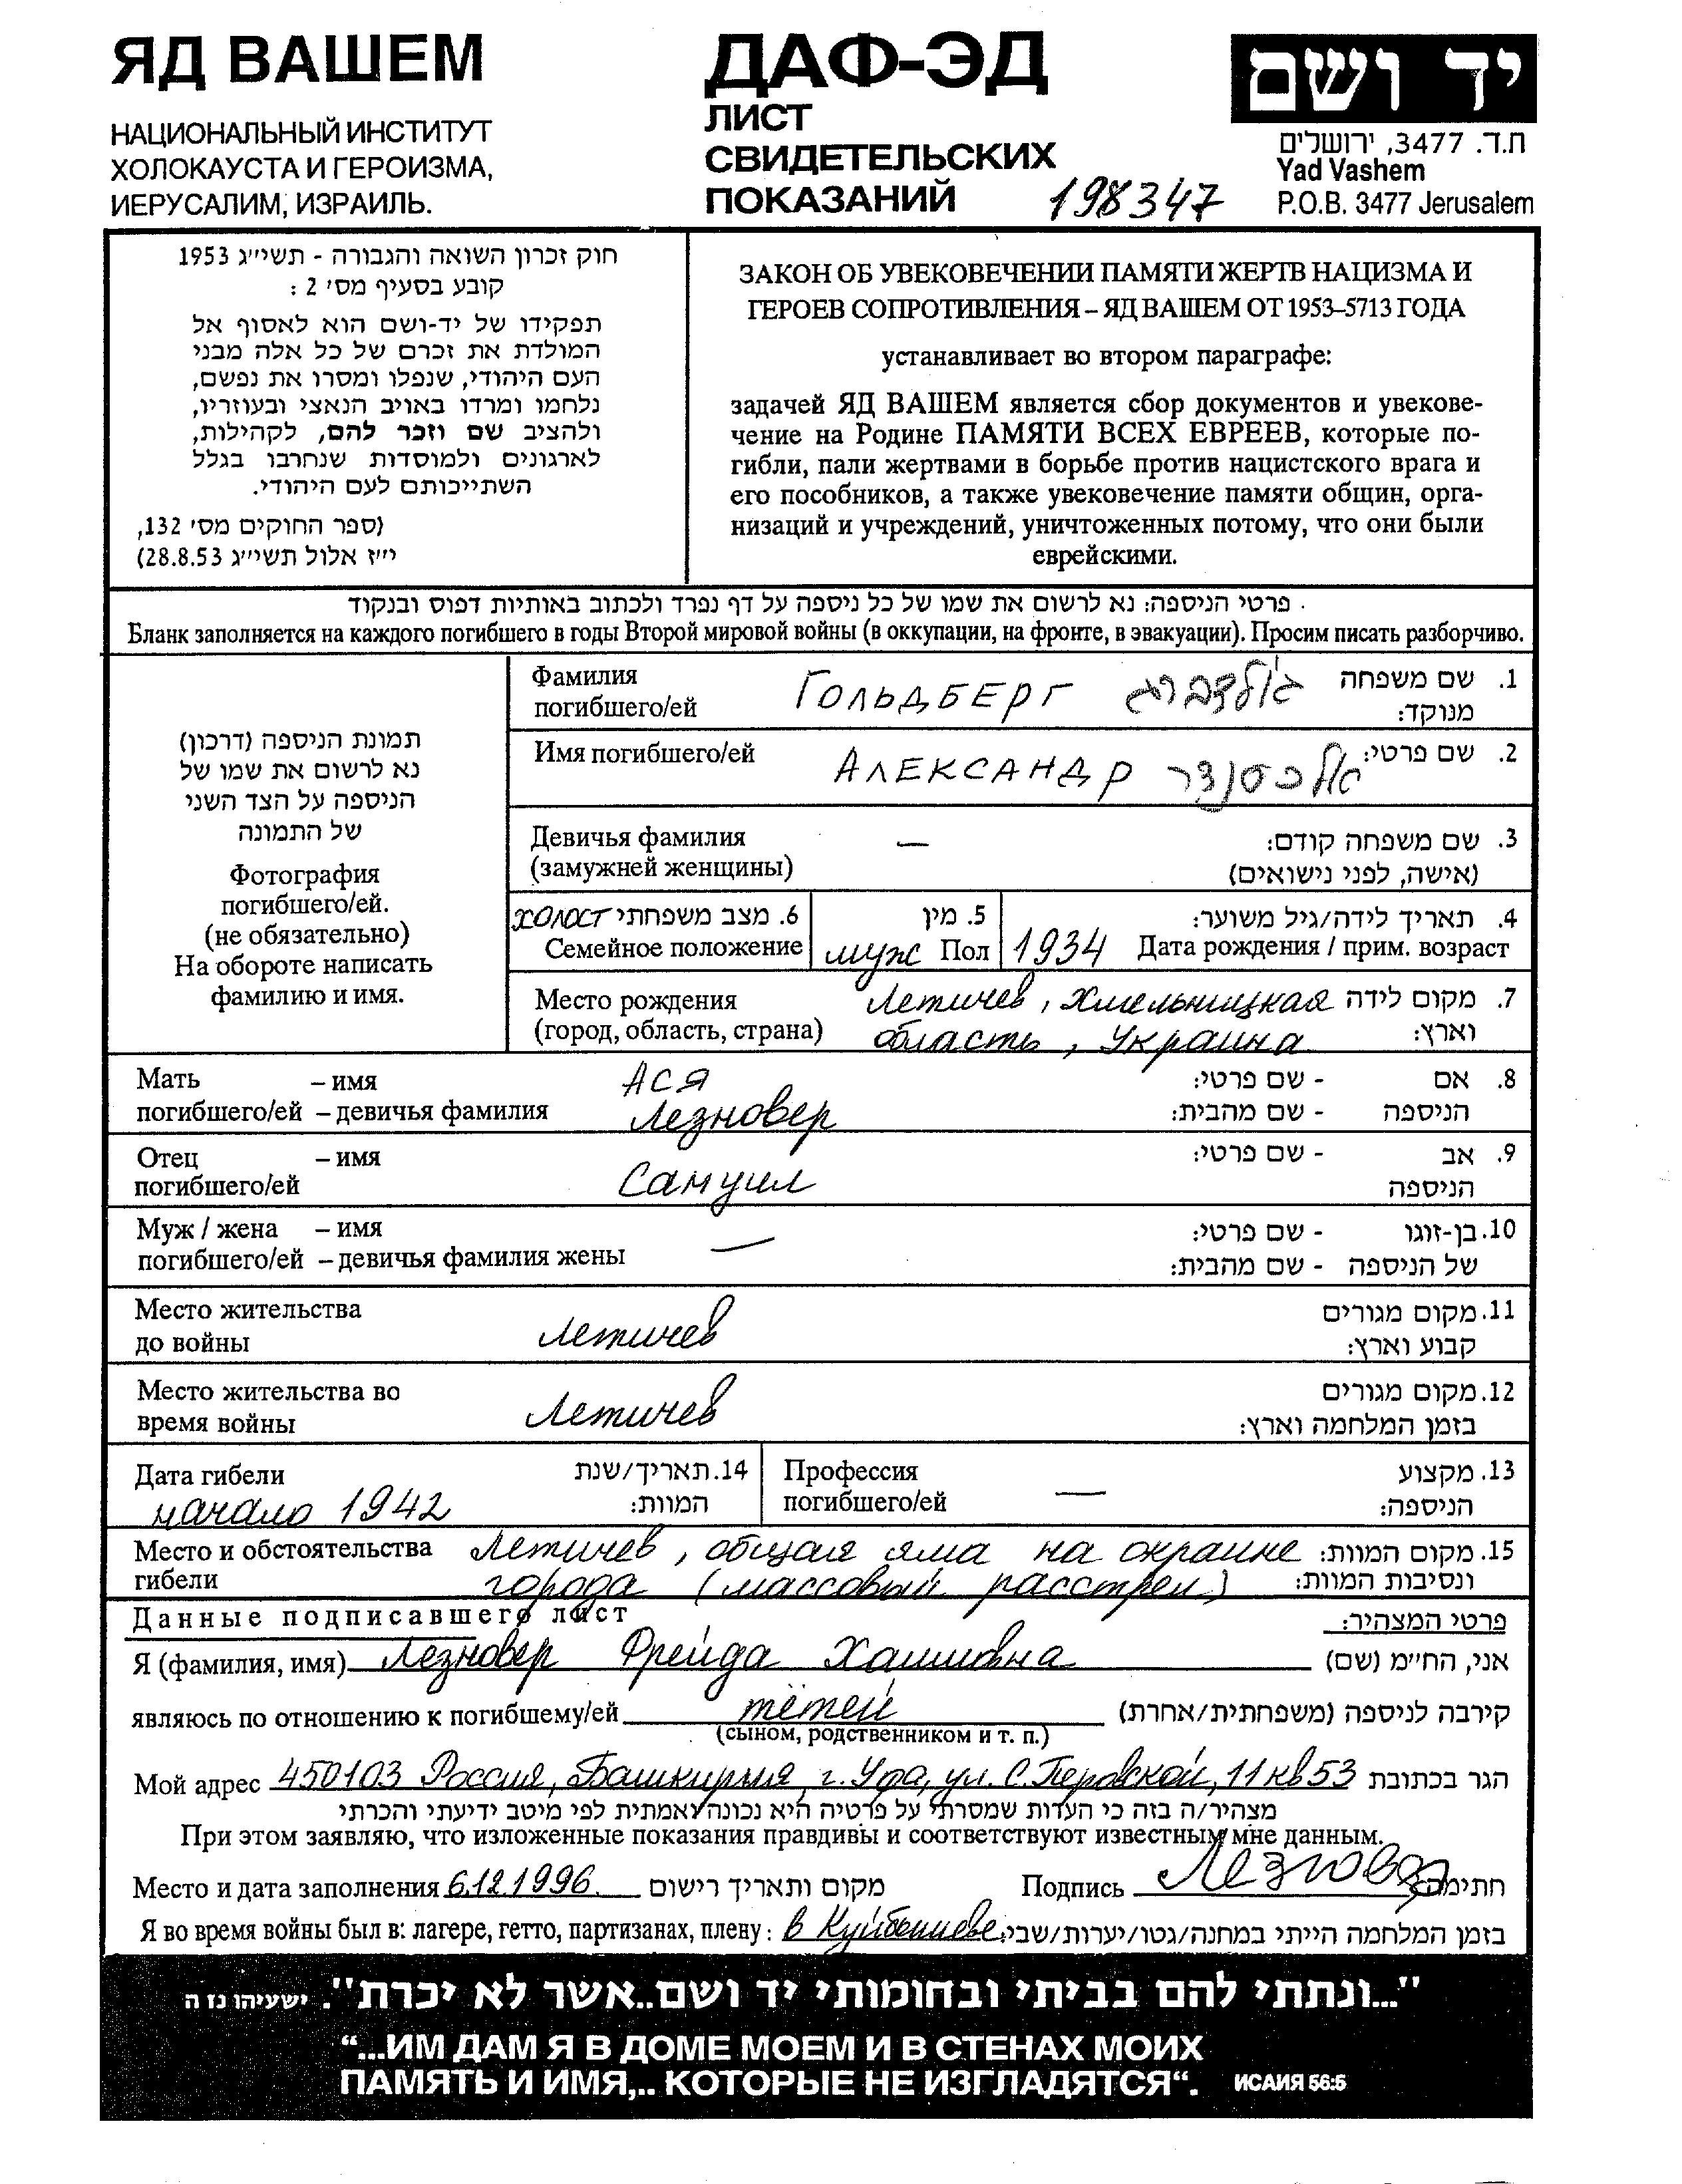 ЯД ВАШЕМ
НАЦИОНАЛЬНЫЙ ИНСТИТУТ
ХОЛОКАУСТА И ГЕРОИЗМА,
ИЕРУСАЛИМ, ИЗРАИЛЬ.
ДАФ-ЭД
ЛИСТ
СВИДЕТЕЛЬСКИХ
ПОКАЗАНИЙ 198347
יד ושם
ת.ד. 3477, ירושלים
Yad Vashem
P.O.B. 3477 Jerusalem
חוק זכרון השואה והגבורה - תשי״ג 1953
קובע בסעיף מס׳ 2 :
תפקידו של יד-ושם הוא לאסוף אל
המולדת את זכרם של כל אלה מבני
העם היהודי, שנפלו ומסרו את נפשם,
נלחמו ומרדו באויב הנאצי ובעוזריו,
ולהציב שם וזכר להם, לקהילות,
לארגונים ולמוסדות שנחרבו בגלל
השתייכותם לעם היהודי.
(ספר החוקים מס׳ 132,
י״ז אלול תשי״ג 28.8.53)
ЗАКОН ОБ УВЕКОВЕЧЕНИИ ПАМЯТИ ЖЕРТВ НАЦИЗМА И
ГЕРОЕВ СОПРОТИВЛЕНИЯ – ЯД ВАШЕМ ОТ 1953–5713 ГОДА
устанавливает во втором параграфе:
задачей ЯД ВАШЕМ является сбор документов и увекове-
чение на Родине ПАМЯТИ ВСЕХ ЕВРЕЕВ, которые по-
гибли, пали жертвами в борьбе против нацистского врага и
его пособников, а также увековечение памяти общин, орга-
низаций и учреждений, уничтоженных потому, что они были
еврейскими.
פרטי הניספה: נא לרשום את שמו של כל ניספה על דף נפרד ולכתוב באותיות דפוס ובנקוד
Бланк заполняется на каждого погибшего в годы Второй мировой войны (в оккупации, на фронте, в эвакуации). Просим писать разборчиво.
תמונת הניספה (דרכון)
נא לרשום את שמו של
הניספה על הצד השני
של התמונה
Фотография
погибшего/ей.
(не обязательно)
На обороте написать
фамилию и имя.
Фамилия ГОЛЬДБЕРГ גולדברג 1. שם משפחה
погибшего/ей מנוקד:
Имя погибшего/ей АЛЕКСАНДР אלכסנדר 2. שם פרטי:
Девичья фамилия — 3. שם משפחה קודם:
(замужней женщины) (אישה, לפני נישואים)
холост 6. מצב משפחתי 5. מין 4. תאריך לידה/גיל משוער:
Семейное положение муж Пол 1934 Дата рождения / прим. возраст
Место рождения Летичев, Хмельницкая 7. מקום לידה
(город, область, страна) область, Украина וארץ:
Мать – имя АСЯ 8. אם - שם פרטי:
погибшего/ей – девичья фамилия Лезновер הניספה - שם מהבית:
Отец – имя 9. אב - שם פרטי:
погибшего/ей Самуил הניספה
Муж / жена – имя — 10. בן-זוגו - שם פרטי:
погибшего/ей – девичья фамилия жены של הניספה - שם מהבית:
Место жительства 11. מקום מגורים
до войны Летичев קבוע וארץ:
Место жительства во 12. מקום מגורים
время войны Летичев בזמן המלחמה וארץ:
Дата гибели 14. תאריך/שנת Профессия 13. מקצוע
начало 1942 המוות: погибшего/ей — הניספה:
Место и обстоятельства Летичев, общая яма на окраине 15. מקום המוות:
гибели города (массовый расстрел) ונסיבות המוות:
Данные подписавшего лист פרטי המצהיר:
Я (фамилия, имя) Лезновер Фрейда Хаимовна אני, הח״מ (שם)
являюсь по отношению к погибшему/ей тётей קירבה לניספה (משפחתית/אחרת)
(сыном, родственником и т. п.)
Мой адрес 450103 Россия, Башкирия, г. Уфа, ул. С. Перовской, 11 кв 53 הגר בכתובת
מצהיר/ה בזה כי העדות שמסרתי על פרטיה היא נכונה ואמתית לפי מיטב ידיעתי והכרתי
При этом заявляю, что изложенные показания правдивы и соответствуют известным мне данным.
Место и дата заполнения 6.12.1996. מקום ותאריך רישום Подпись Лезновер חתימה
Я во время войны был в: лагере, гетто, партизанах, плену: в Куйбышеве בזמן המלחמה הייתי במחנה/גטו/יערות/שבי:
"...ונתתי להם בביתי ובחומותי יד ושם..אשר לא יכרת". ישעיהו נו ה
“...ИМ ДАМ Я В ДОМЕ МОЕМ И В СТЕНАХ МОИХ
ПАМЯТЬ И ИМЯ,.. КОТОРЫЕ НЕ ИЗГЛАДЯТСЯ“. ИСАИЯ 56:5